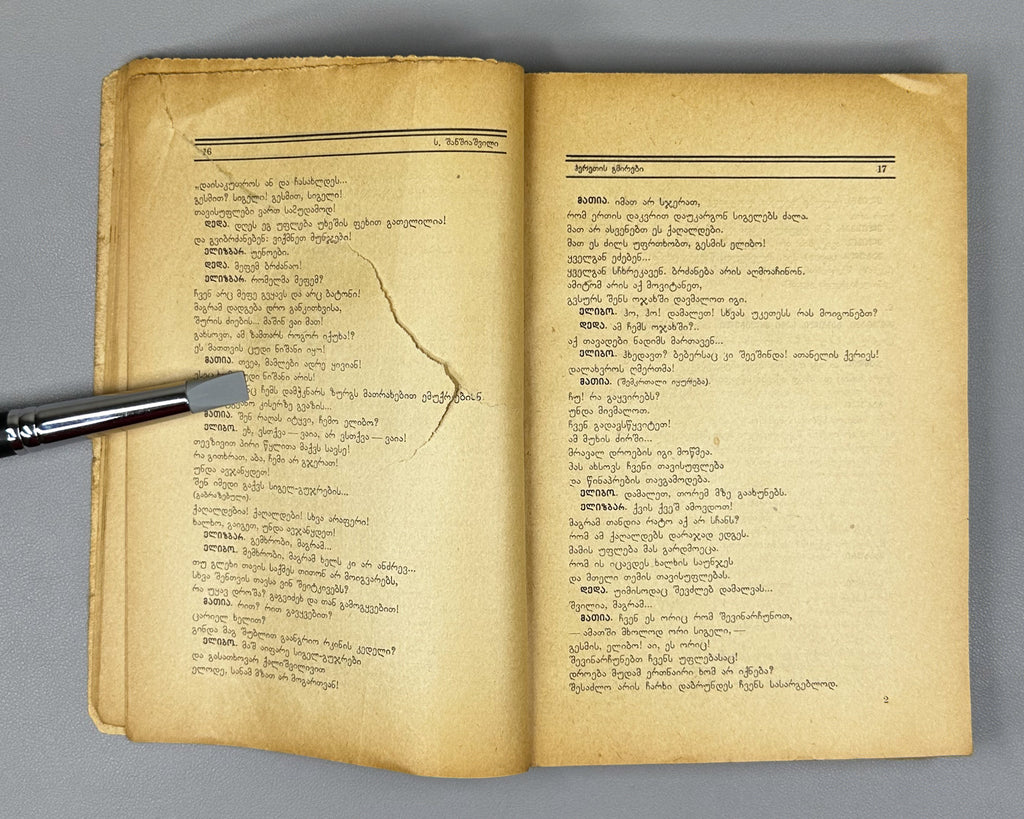 16
ს. შანშიაშვილი
„დაისაკუთროს ან და ჩასახლდეს...
გესმით? სიგელი! გესმით, სიგელი!
თავისუფლები ვართ სამუდამოდ!
დედა. დღეს ეგ უფლება უხეშის ფეხით გათელილია!
და გვიბრძანებენ: ვიქმნეთ მუნჯები!
ელიზბარ. უენოები.
დედა. მეფემ ბრძანაო!
ელიზბარ. რომელმა მეფემ?
ჩვენ არც მეფე გვყავს და არც ბატონი!
მაგრამ დადგება დრო განკითხვისა,
შურის ძიების... მაშინ ვაი მათ!
გახსოვთ, ამ ზამთარს როგორ იქუხა?
ეს მათთვის ცუდი ნიშანი იყო!
მათია. თვეა, მამლები ადრე ყივიან!
ნიშანი არის!
ჩემს დამჭკნარს ზურგს მათრახებით ემუქრებიან
კისერზე გეაზის...
მათია. შენ რაღას იტყვი, ჩემო ელიბო?
ელიბო. ეჰ, ვსთქვა — ვაია, არ ვსთქვა — ვაია!
თევზივით პირი წყლითა მაქვს სავსე!
რა გითხრათ, აბა, ჩემი არ გჯერათ!
უნდა ავჯანყდეთ!
შენ იმედი გაქვს სიგელ-გუჯრების...
(გაბრაზებული).
ქაღალდებია! ქაღალდები! სხვა არაფერი!
ხალხო, გაიგეთ, უნდა ავჯანყდეთ!
ელიზბარ. გემხრობი, მაგრამ...
ელიბო. მემხრობი, მაგრამ ხელს კი არ ანძრევ...
თუ გლეხი თავის საქმეს თითონ არ მოიგვარებს,
სხვა შენთვის თავსა ვინ შეიტკივებს?
რა უყავ დროშა? გაგვიძეხ და თან გამოგყვებით!
მათია. რით? რით გავყვებით?
ცარიელ ხელით?
გინდა მაგ შუბლით გაანგრიო რკინის კედელი?
ელიბო. მაშ აიფარე სიგელ-გუჯრები
და გასათხოვარ ქალიშვილივით
ელოდე, სანამ მზათ არ მოგართვან!
ჰერეთის გმირები
17
მათია. იმათ არ სჯერათ,
რომ ერთის დაკვრით დაუკარგონ სიგელებს ძალა.
მათ არ ასვენებთ ეს ქაღალდები.
მათ ეს ძილს უფრთხობთ, გესმის ელიბო!
ყველგან ეძებენ...
ყველგან სჩხრეკავენ. ბრძანება არის აღმოაჩინონ.
ამიტომ არის აქ მოვიტანეთ,
გვსურს შენს ოჯახში დავმალოთ იგი.
ელიბო. ჰო, ჰო! დამალეთ! სხვას უკეთესს რას მოიგონებთ?
დედა. ამ ჩემს ოჯახში?..
აქ თავადები ნადიმს მართავენ...
ელიბო. ჰხედავთ? ბებერსაც კი შეეშინდა! ათანელის ქვრივს!
დალახვროს ღმერთმა!
მათია. (შემკრთალი იყურება).
ჩუ! რა გაყვირებს?
უნდა მივმალოთ.
ჩვენ გადავსწყვიტეთ!
ამ მუხის ძირში...
მრავალ დროების იგი მოწმეა.
მას ახსოვს ჩვენი თავისუფლება
და წინაპრების თავგამოდება.
ელიბო. დამალეთ, თორემ მზე გაახუნებს.
ელიზბარ. ქვის ქვეშ ამოვდოთ!
მაგრამ თანდია რატო აქ არ სჩანს?
რომ ამ ქაღალდებს დარაჯად ედგეს.
მამის უფლება მას გარდმოეცა.
რომ ის იცავდეს ხალხის საუნჯეს
და მთელი თემის თავისუფლებას.
დედა. უიმისოდაც შევძლებ დამალვას...
შვილია, მაგრამ...
მათია. ჩვენ ეს ორიც რომ შევინარჩუნოთ,
— ამათში მხოლოდ ორი სიგელი, —
გესმის, ელიბო! აი, ეს ორიც!
შევინარჩუნებთ ჩვენს უფლებასაც!
დროება მუდამ ერთნაირი ხომ არ იქნება?
შესაძლო არის ჩარხი დაბრუნდეს ჩვენს სასარგებლოდ.
2